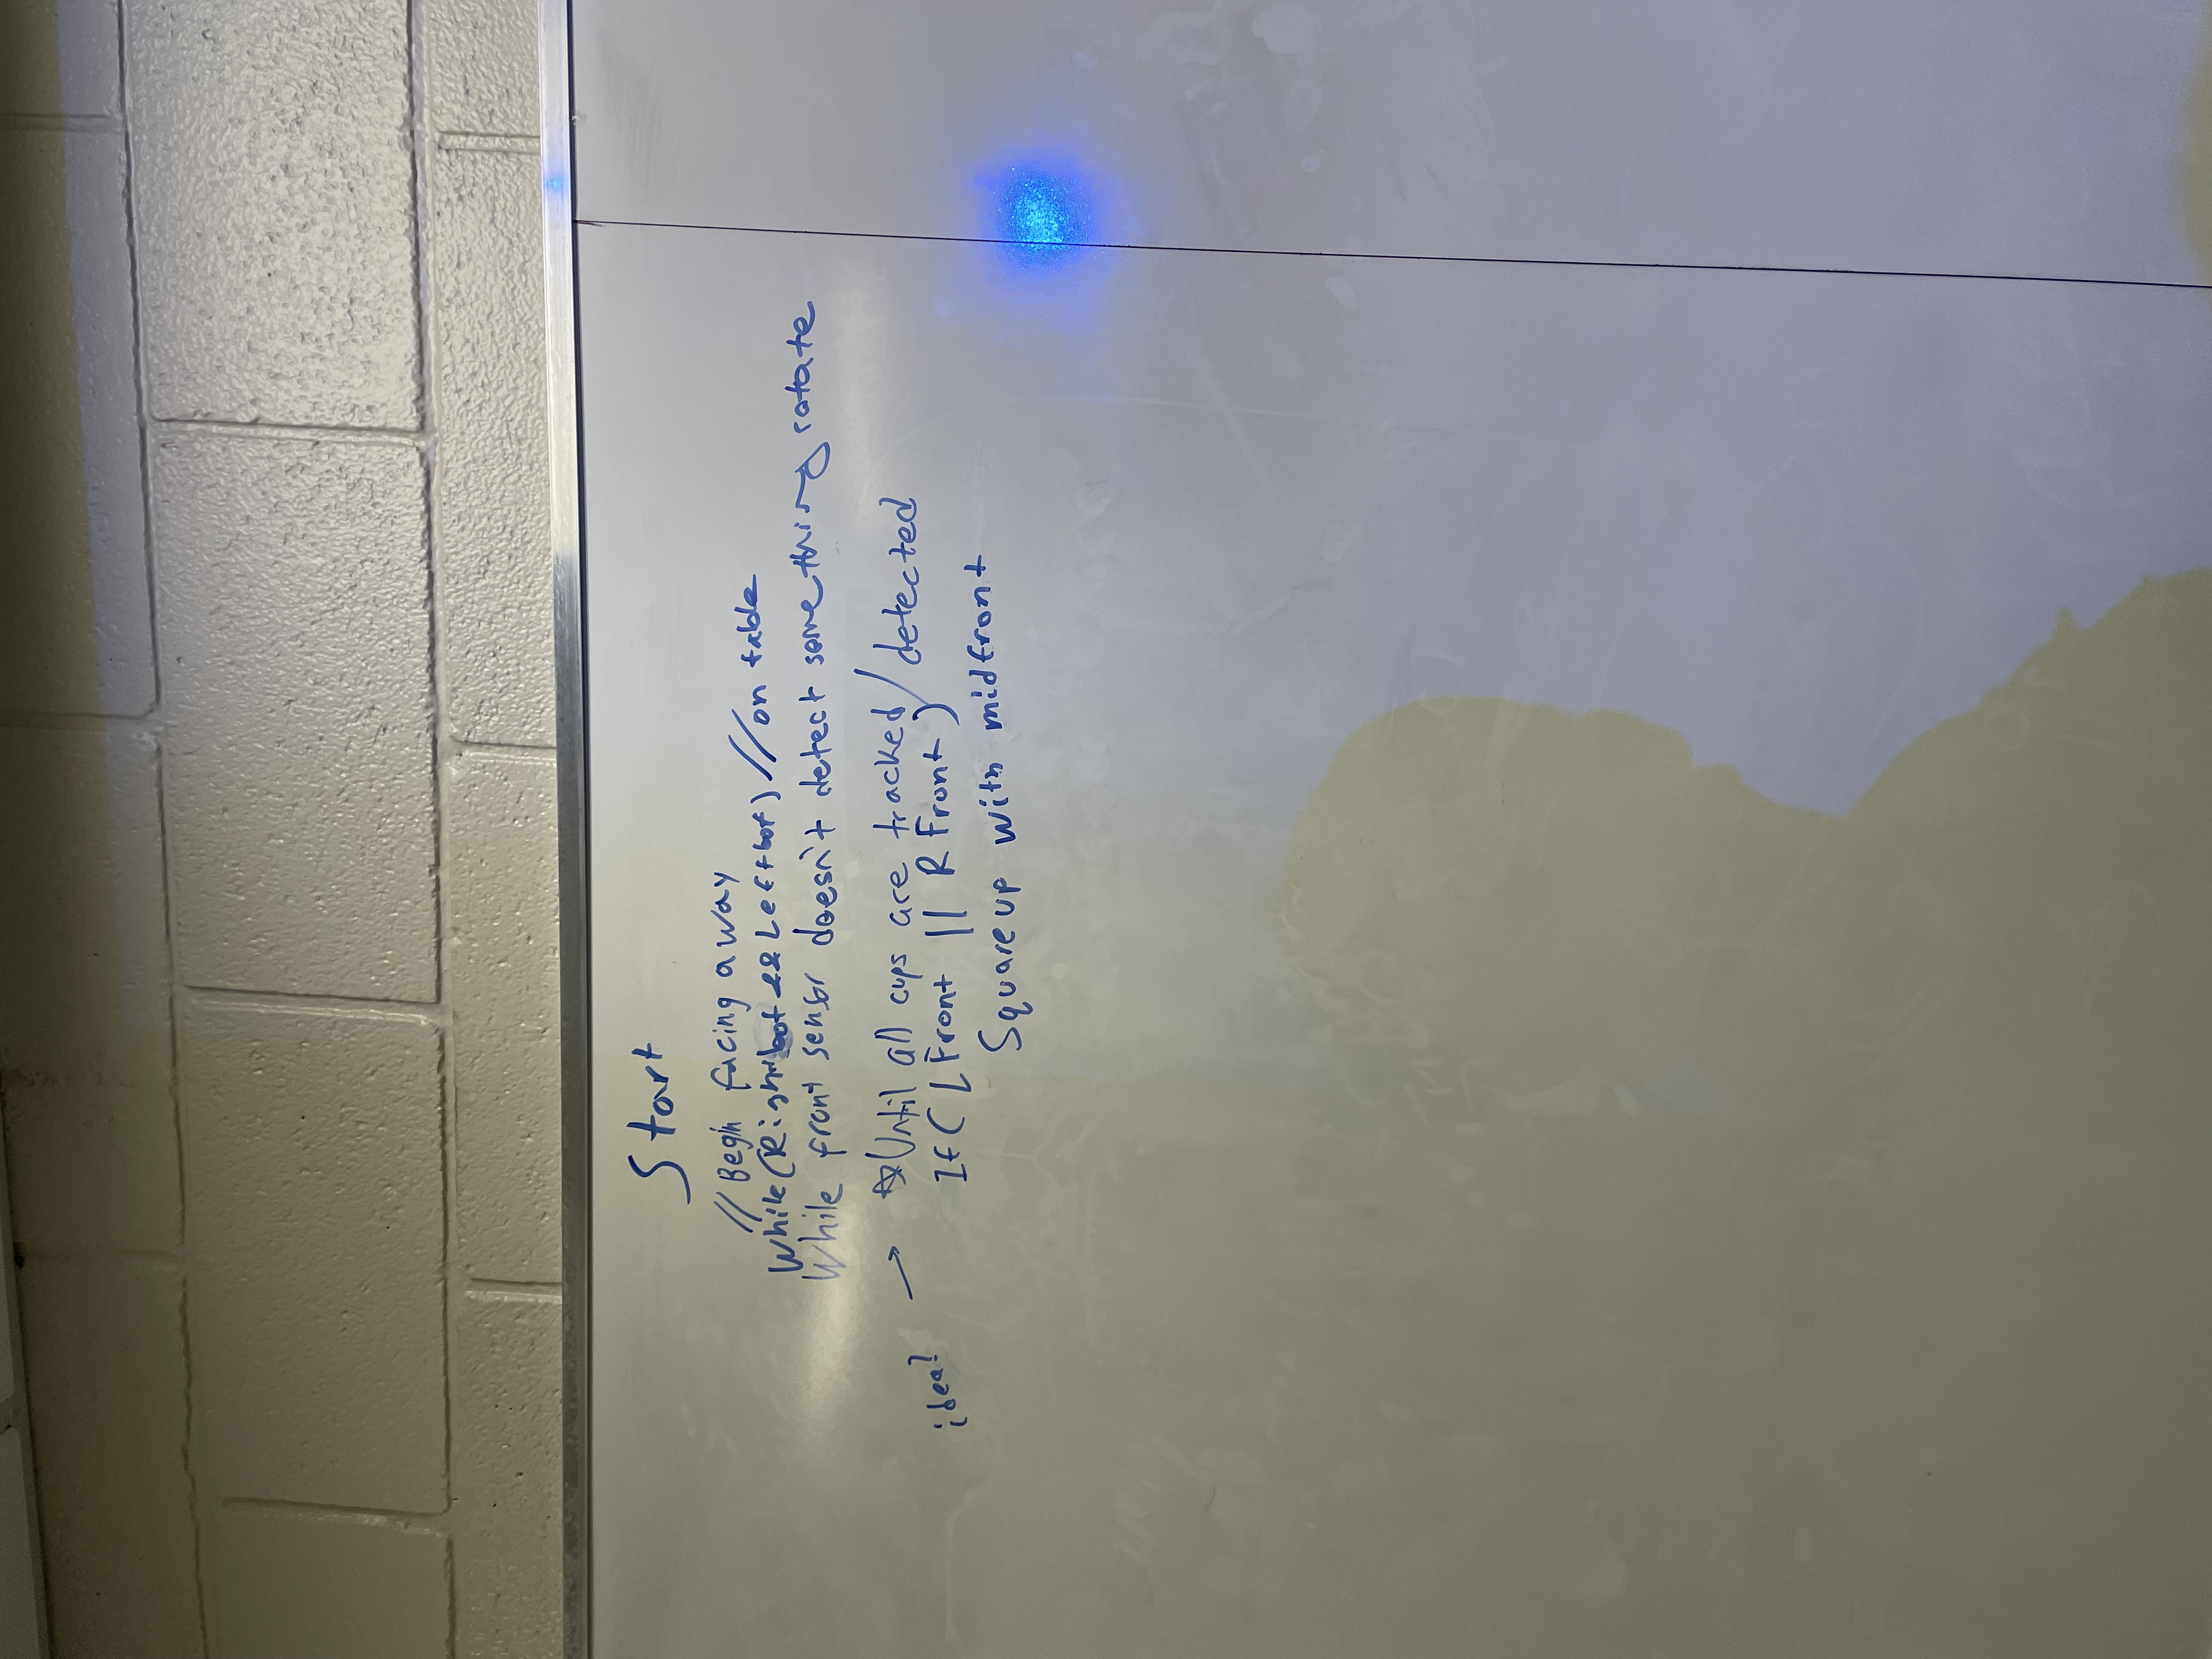 Start
// Begin facing away
While(Rightbot && Leftbot) // on table
While front sensor doesn't detect something rotate
idea? → ☆Until all cups are tracked / detected
If( LFront || RFront )
Square up with midfront